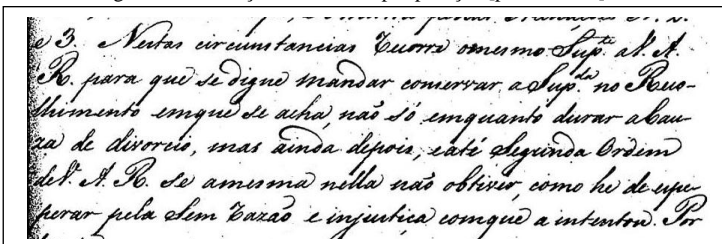 e 3. Nestas circunstancias recorre omesmo Sup.te a V. A.
R. para que se digne mandar conservar a Sup.da no Reco-
lhimento emque se acha, naõ só emquanto durar a Cau-
za de divorcio, mas ainda depois, e até Segunda Ordem
de V. A. R. se amesma nella naõ obtiver, como he de espe-
perar pela Sem razaõ e injustica comque a intentou. Por